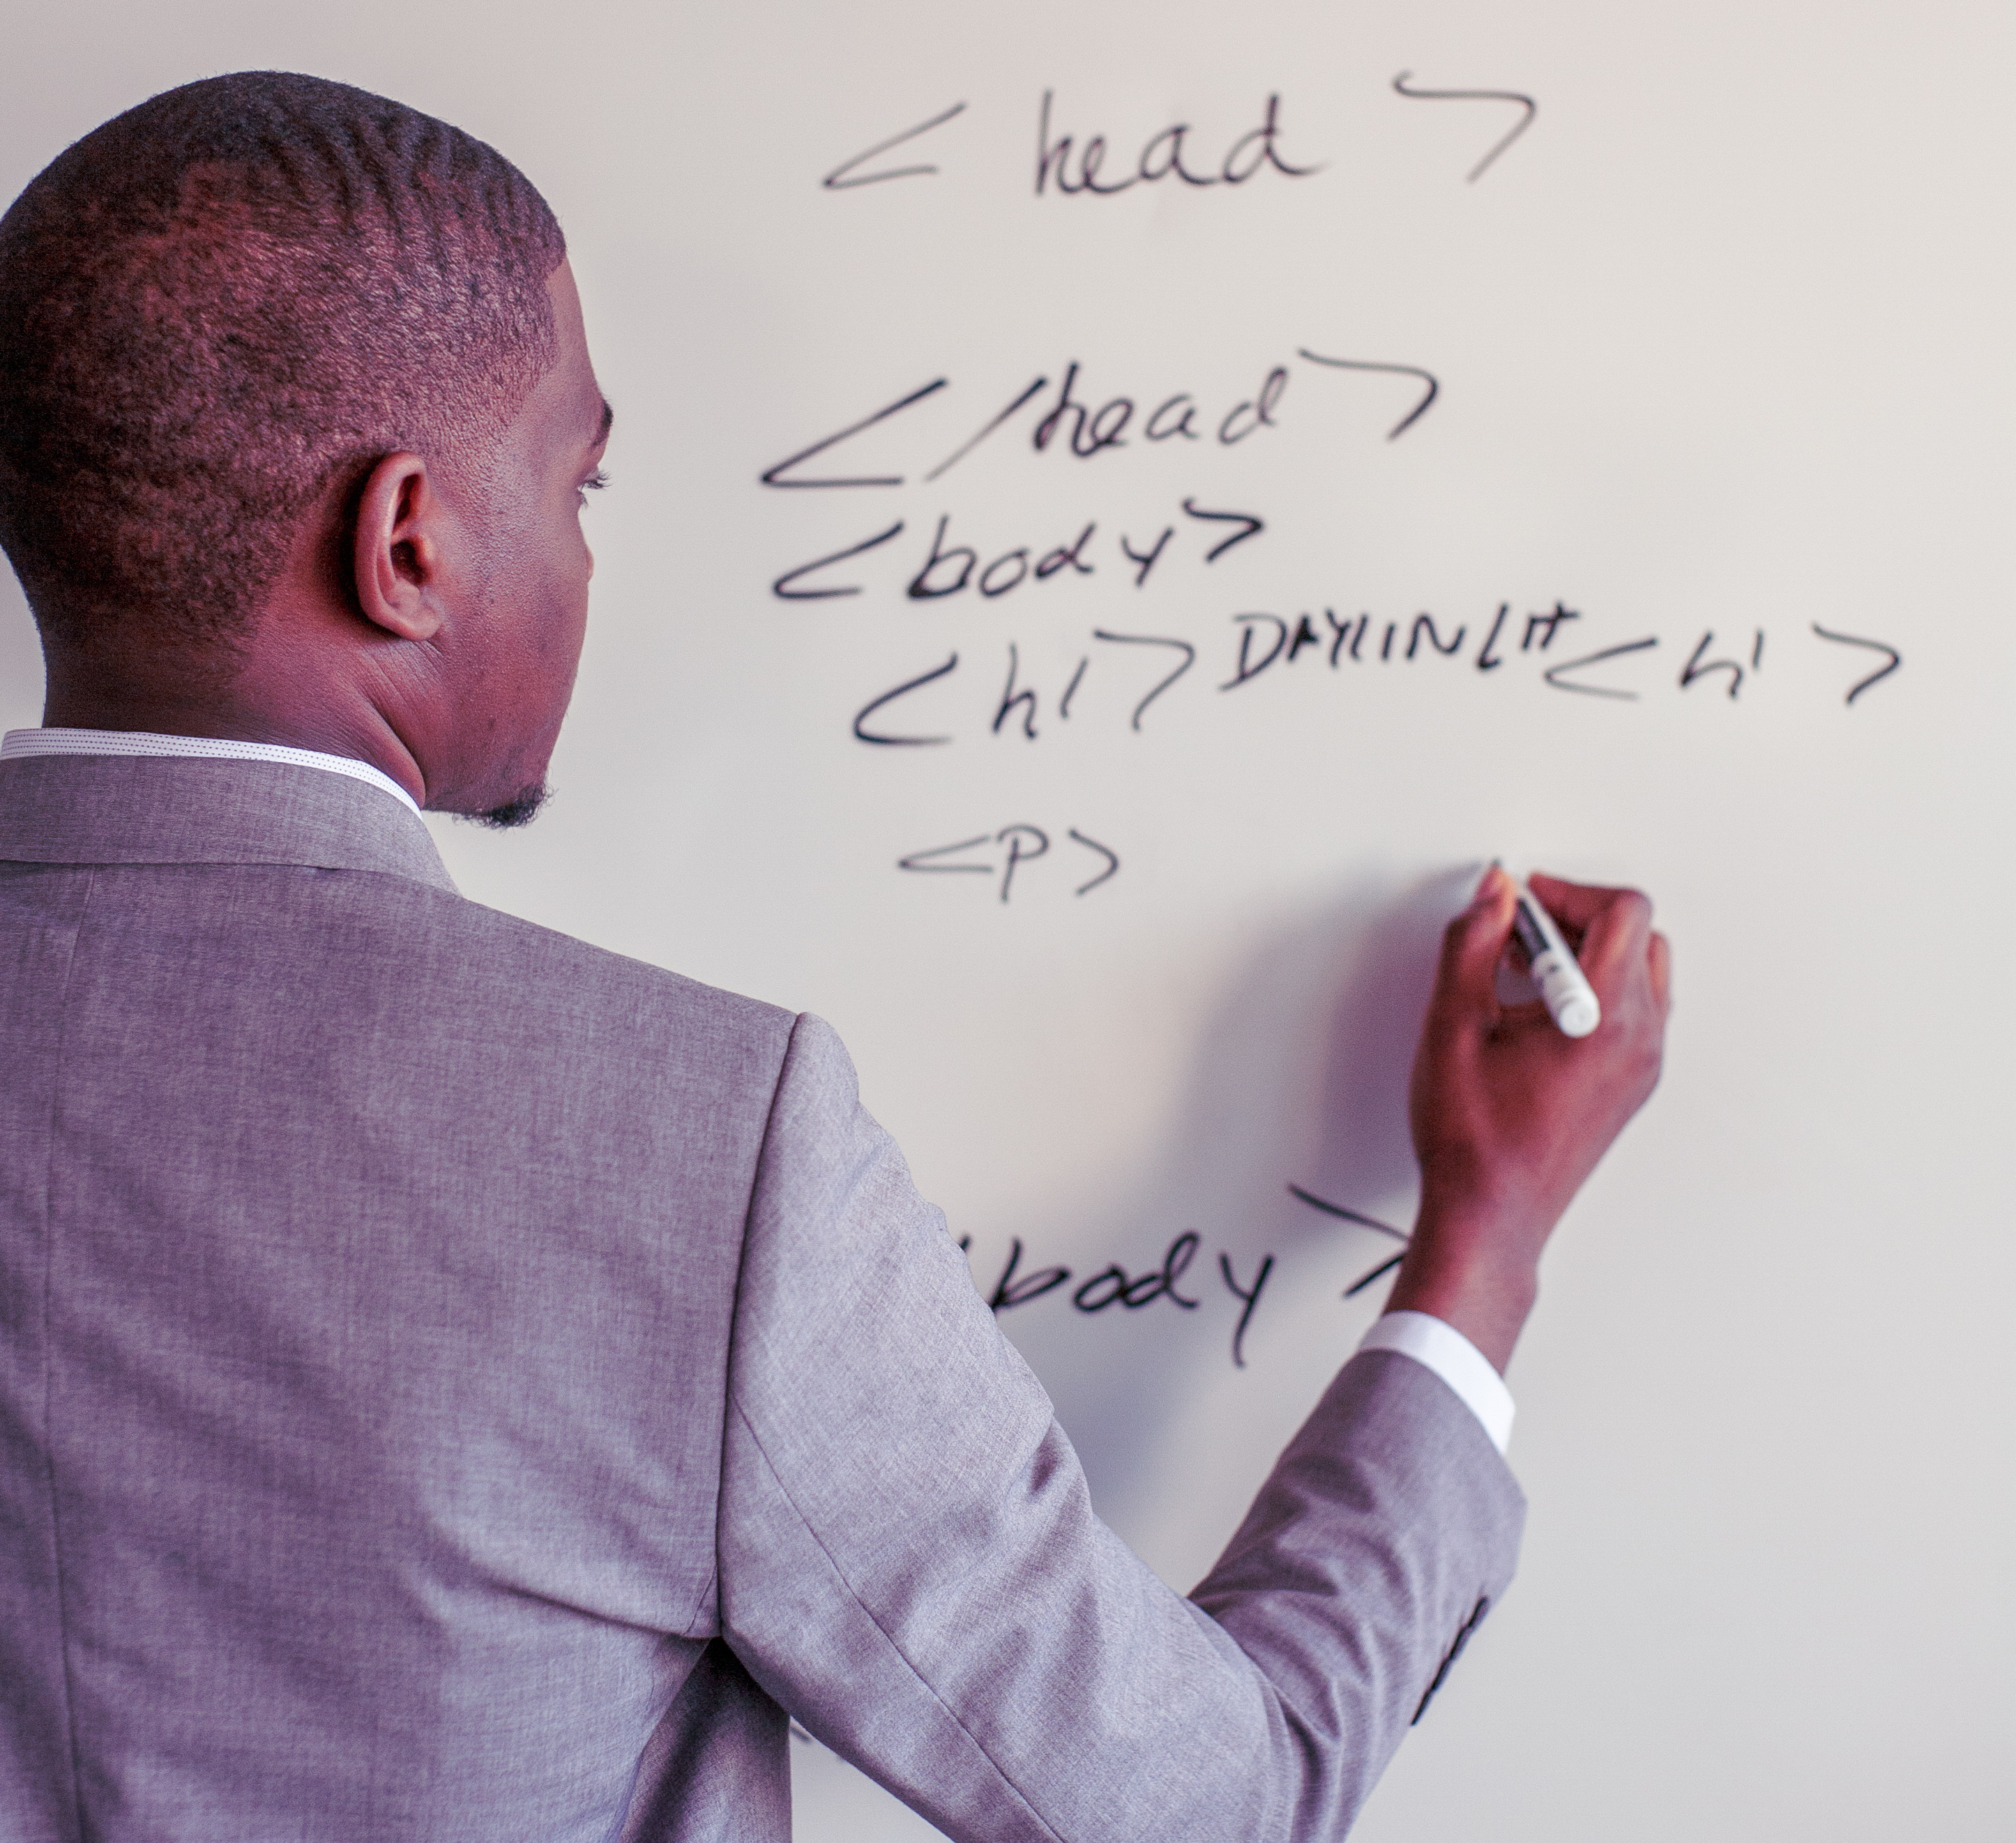 < head >
</head>
<body>
<h1> DAYLINLH <h1>
<P>
body >